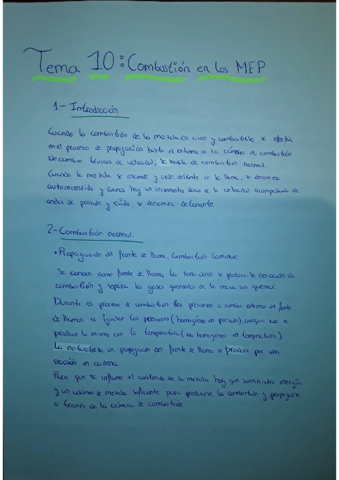 Tema 10: Combustión en los MEP
1- Introducción
Cuando la combustión de la mezcla de aire y combustible se efectúa
en el proceso de propagación hasta el extremo de la cámara de combustión
sin cambios bruscos de velocidad, se habla de combustión normal.
Cuando la mezcla se enciende y arde delante de la llama, se denomina
autoencendido y cuando hay un incremento de la velocidad acompañado de
ondas de presión y ruido, se denomina detonante
2- Combustión normal
• Propagación del frente de llama. Combustión laminar.
Se conoce como frente de llama, la zona donde se produce la reacción de
combustión y separa los gases quemados de la zona sin quemar
Durante el proceso de combustión las presiones a ambos extremos del frente
de llama se igualan las presiones (homogéneo en presión), aunque no se
produce lo mismo con la temperatura (no homogéneo en temperatura).
La naturaleza de propagación del frente de llama se produce por una
reacción en cadena.
Para que se inflame el contenido de la mezcla hay que suministrar energía
y un volumen de mezcla suficiente para producirse la combustión y propagarse
a través de la cámara de combustión